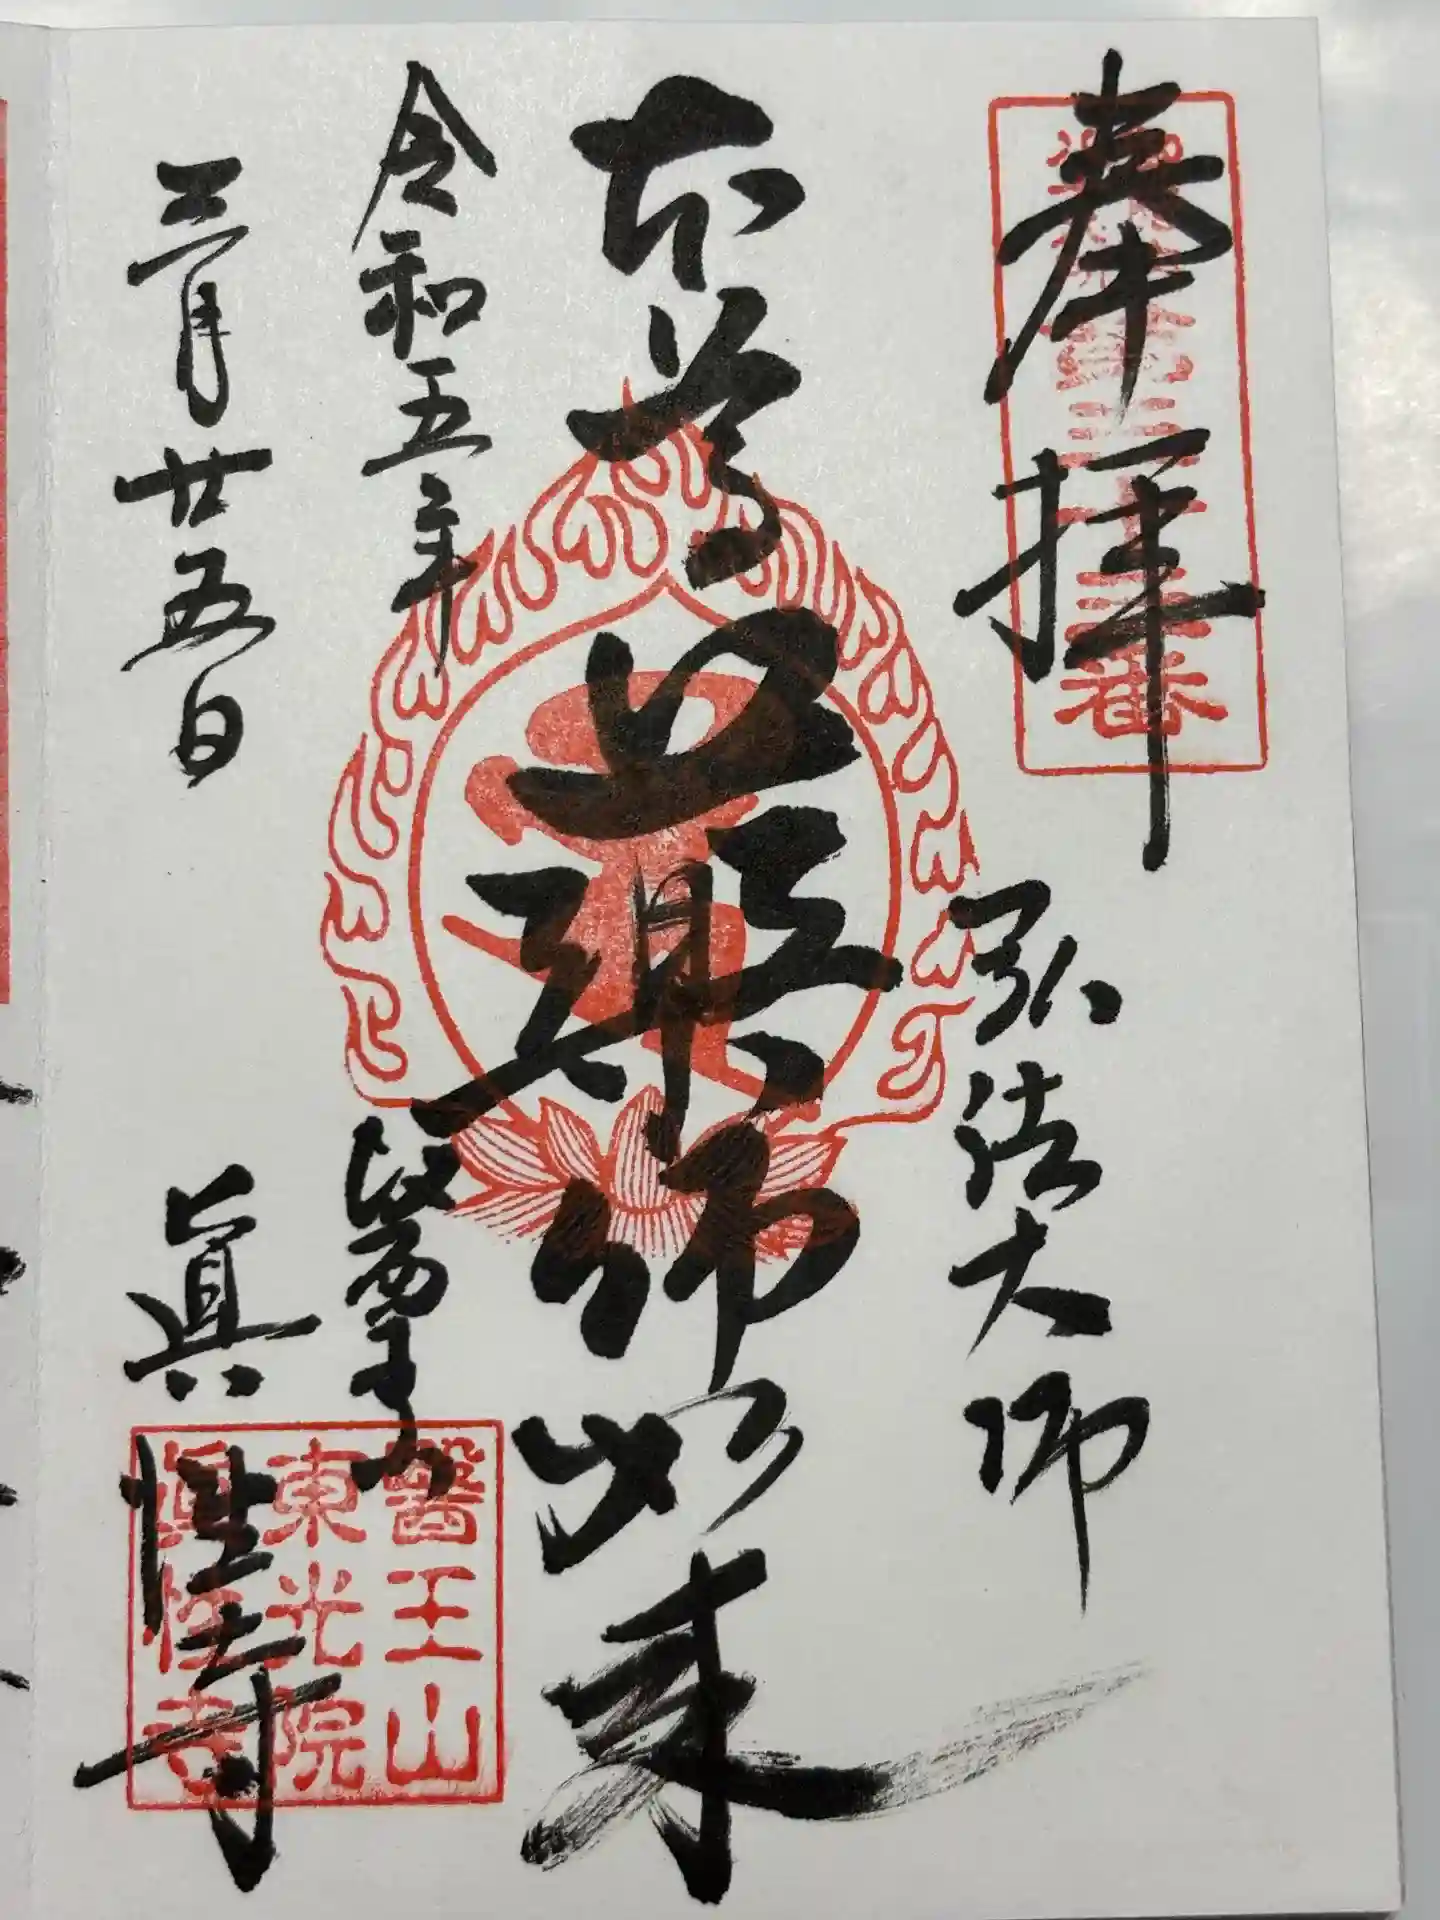 奉拝
弘法大師
本尊
薬師如来
令和五年
三月廿五日
醫王山
眞性寺
醫王山
東光院
眞性寺
三十三番